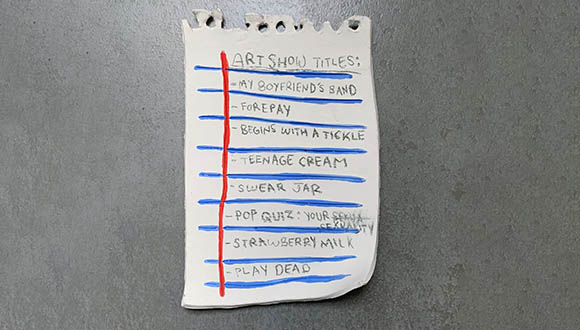 ART SHOW TITLES:
- MY BOYFRIEND'S BAND
- FOREPAY
- BEGINS WITH A TICKLE
- TEENAGE CREAM
- SWEAR JAR
- POP QUIZ: YOUR SEXUA
SEXUALITY
- STRAWBERRY MILK
- PLAY DEAD